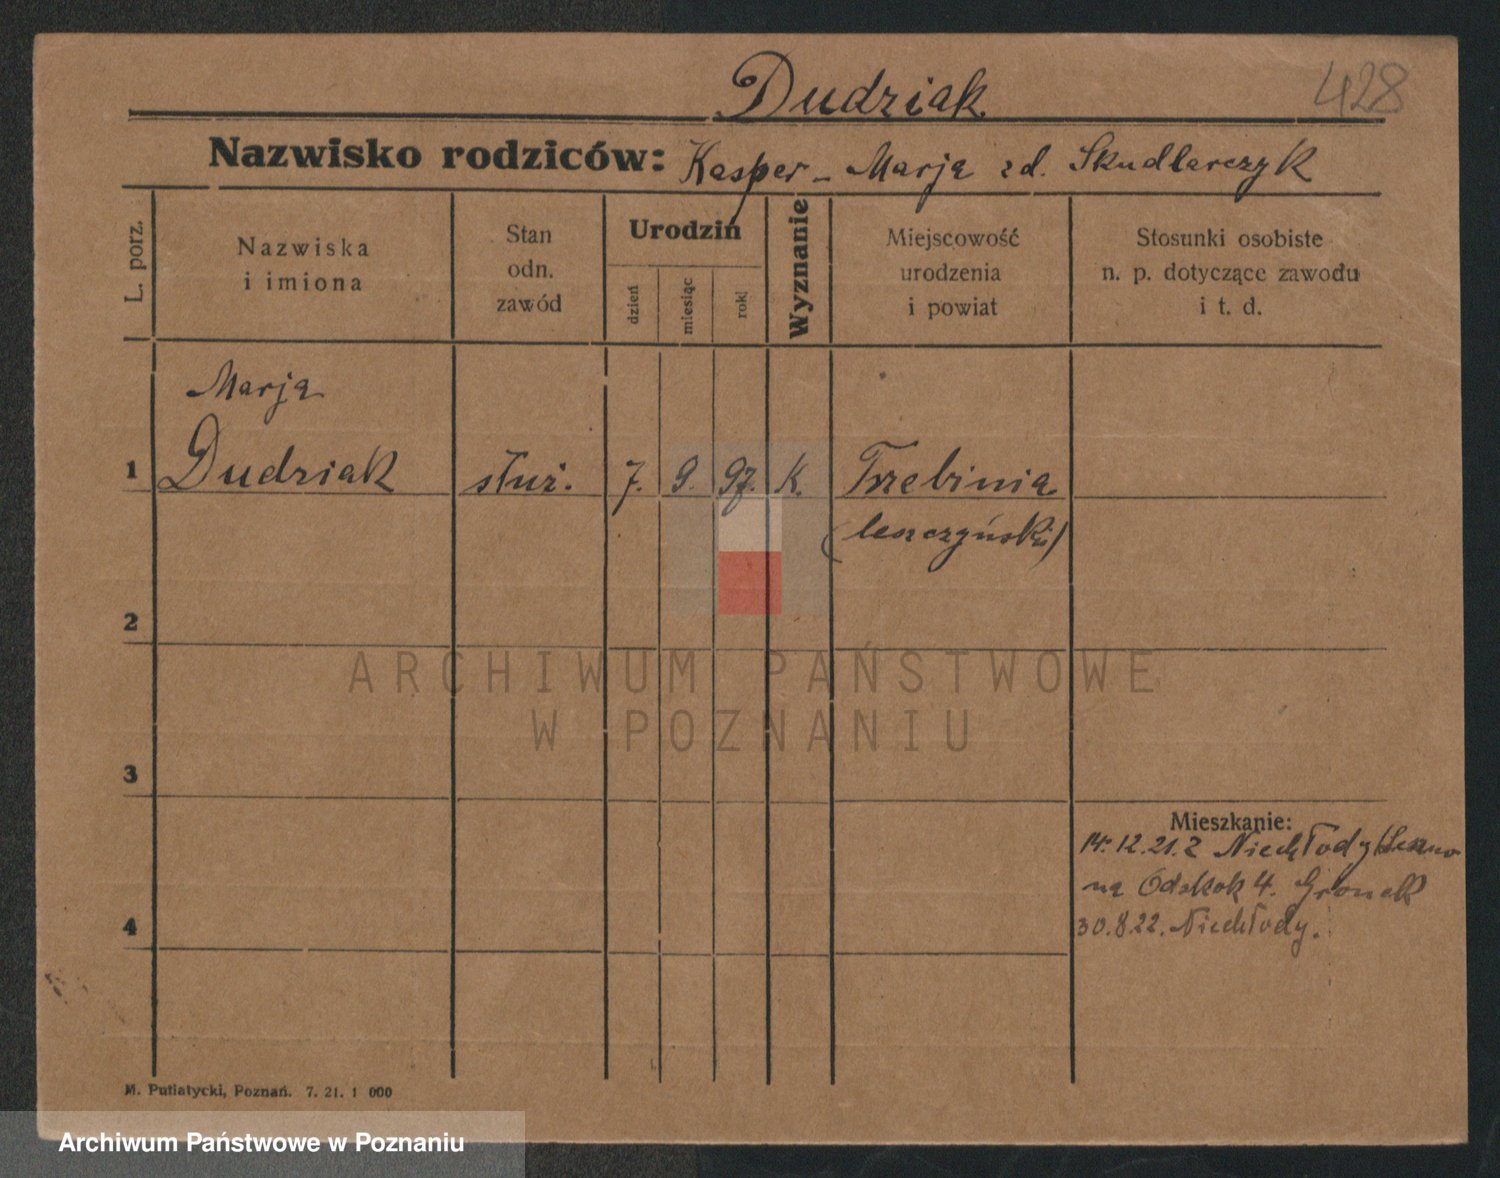 Dudziak
428
Nazwisko rodziców: Kasper - Marja zd. Skudlarczyk
L. porz.
Nazwiska
i imiona
Stan
odn.
zawód
Urodzin
dzień
miesiąc
rok
Wyznanie
Miejscowość
urodzenia
i powiat
Stosunki osobiste
n. p. dotyczące zawodu
i t. d.
Marja
1 Dudziak służ. 7. 9. 97. K. Trzebinia
(leszczyński)
2
3
4
Mieszkanie:
14.12.21. z Niechłody/Leszno
na Odskok 4. Gronek
30.8.22. Niechłody.
M. Putiatycki, Poznań. 7. 21. 1 000
ARCHIWUM PAŃSTWOWE
W POZNANIU
Archiwum Państwowe w Poznaniu